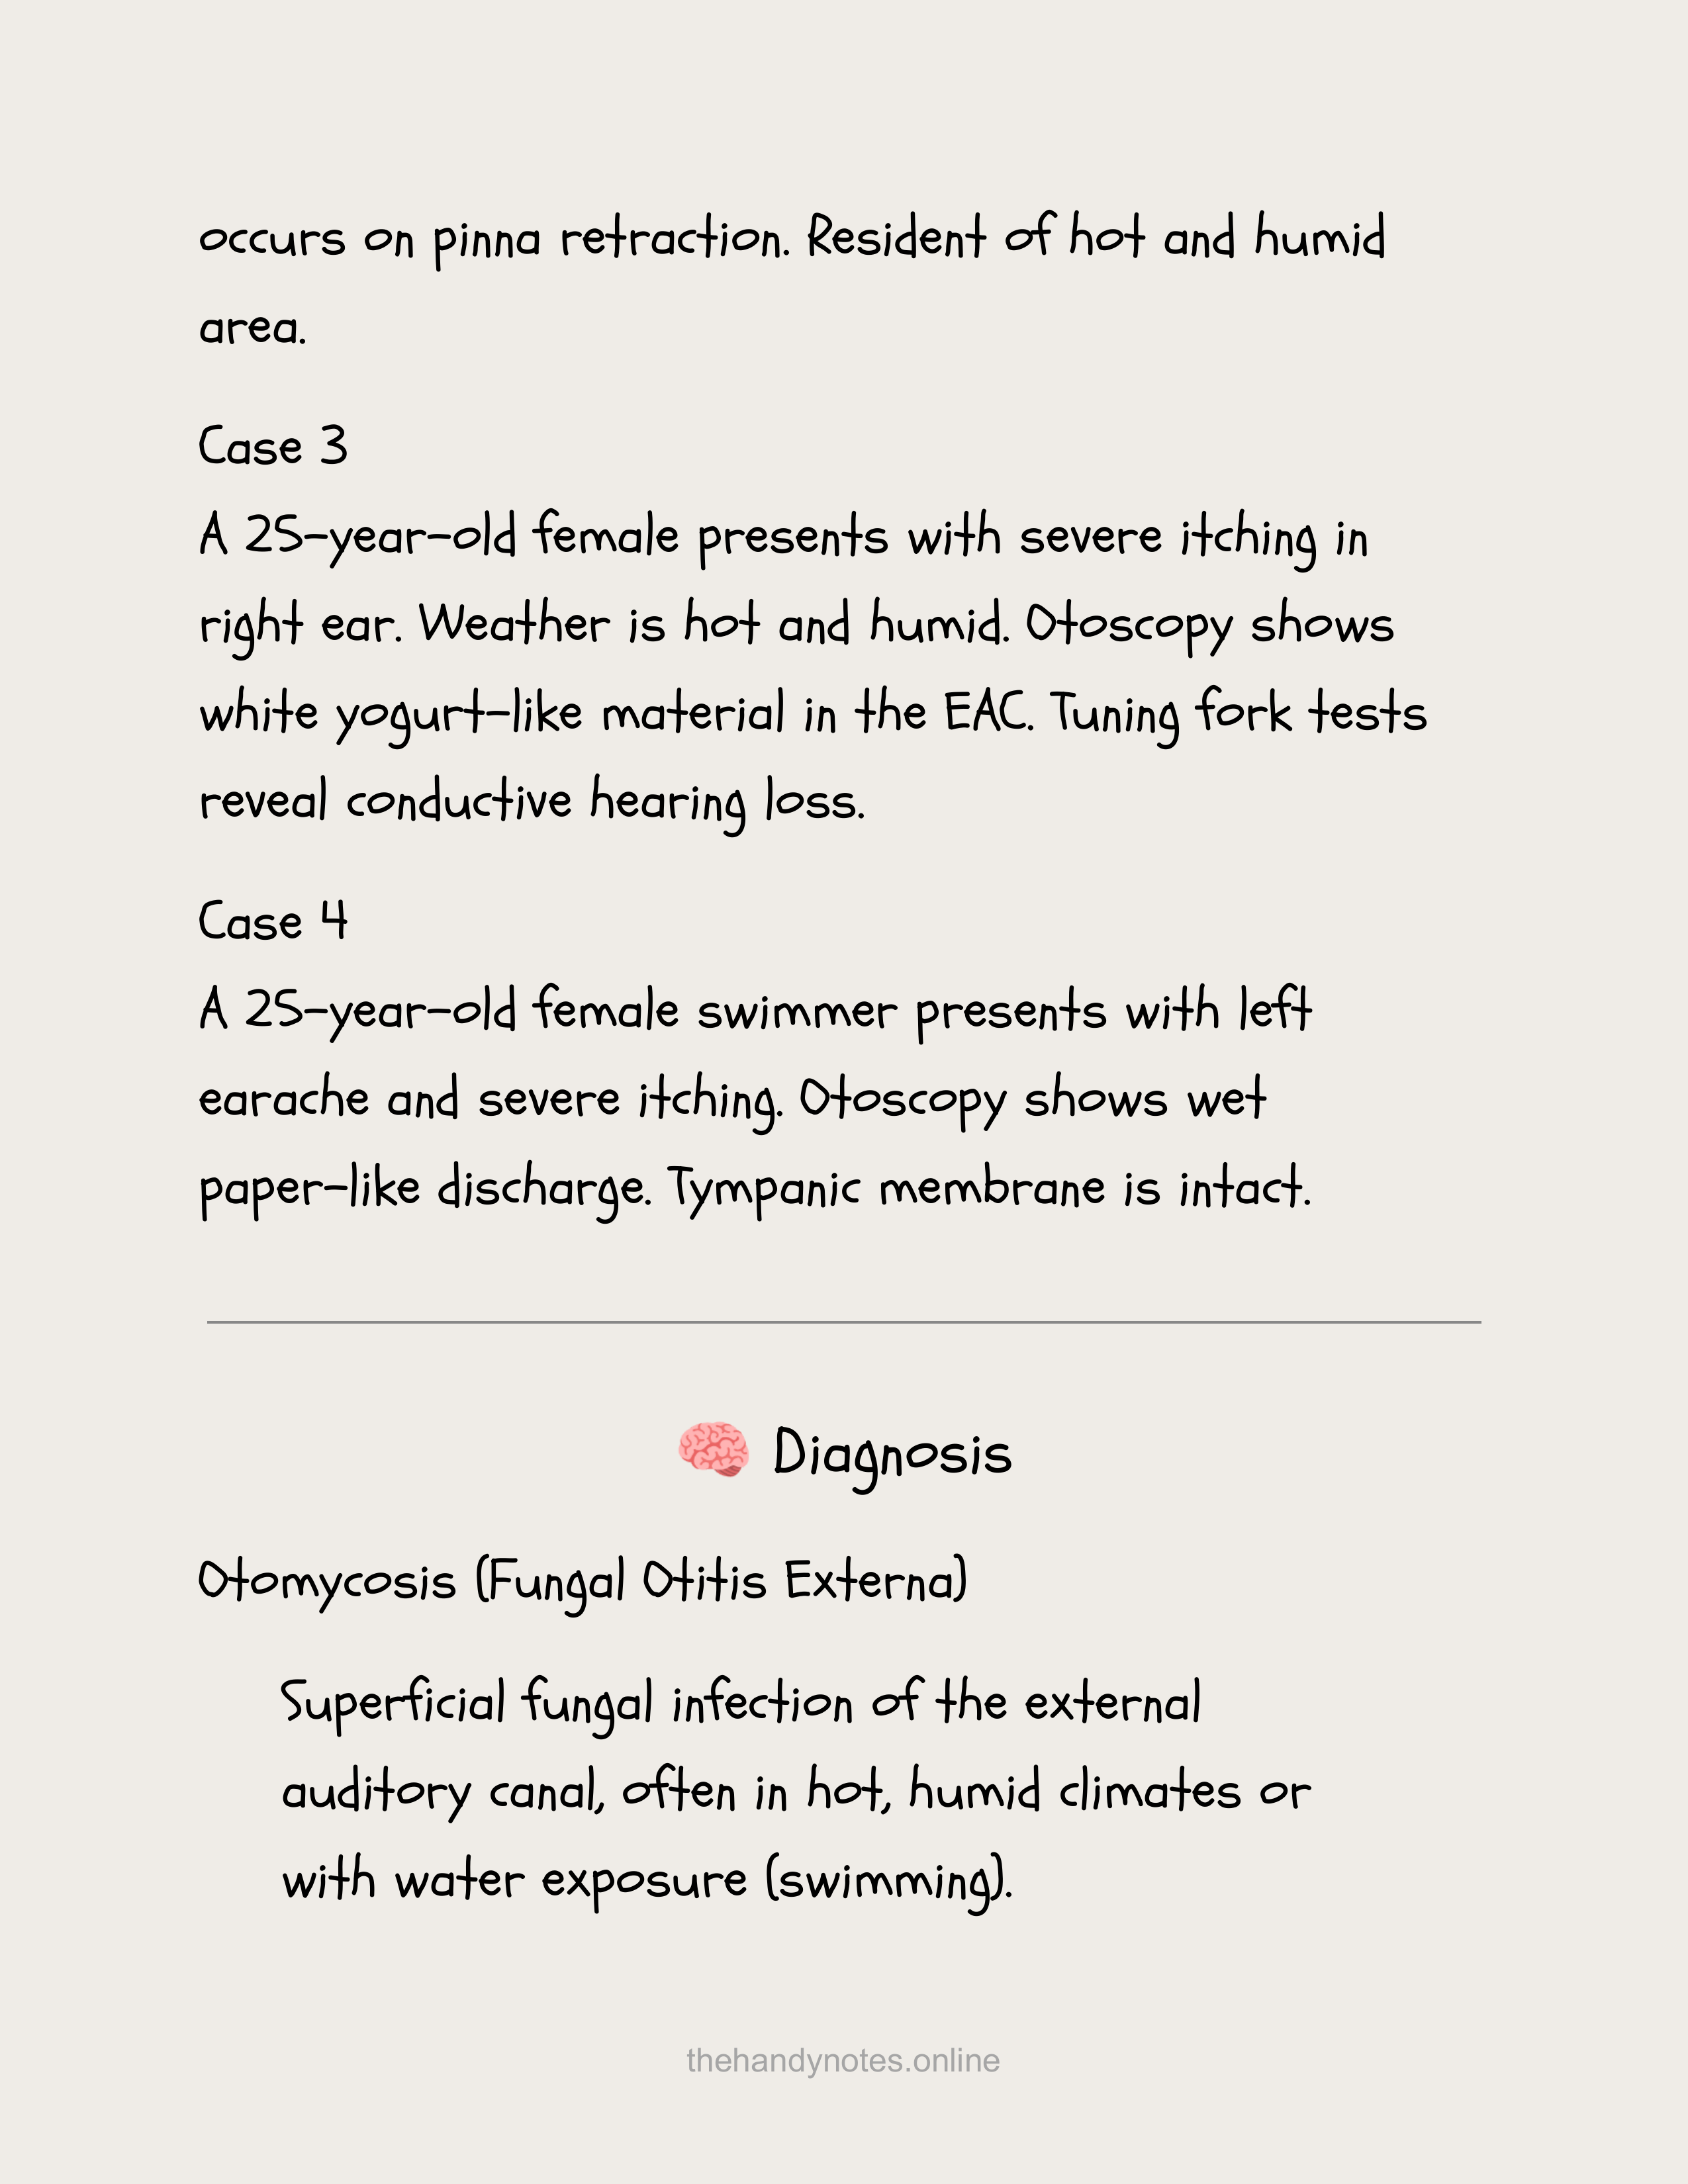 occurs on pinna retraction. Resident of hot and humid
area.
Case 3
A 25-year-old female presents with severe itching in
right ear. Weather is hot and humid. Otoscopy shows
white yogurt-like material in the EAC. Tuning fork tests
reveal conductive hearing loss.
Case 4
A 25-year-old female swimmer presents with left
earache and severe itching. Otoscopy shows wet
paper-like discharge. Tympanic membrane is intact.
🧠 Diagnosis
Otomycosis (Fungal Otitis Externa)
Superficial fungal infection of the external
auditory canal, often in hot, humid climates or
with water exposure (swimming).
thehandynotes.online